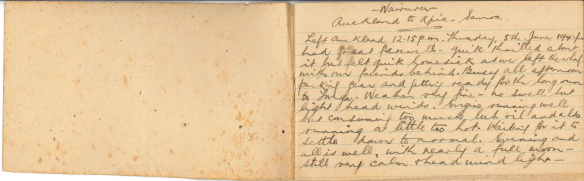 Auckland to Apia - Samoa
Left Auckland 12.15 p.m. Thursday, 5th June
had great farewell. quite thrilled about
it but felt quite homesick as we left the wharf
with our friends behind. Busy all afternoon
packing gear and getting ready for the long run
to Tonga. Weather very fine - no swell but
light head winds. Engine running well
but consuming too much lub oil and also
running a little too hot. Waiting for it to
settle down to normal. Evening and
all is well, with nearly a full moon -
still very calm & head wind light -